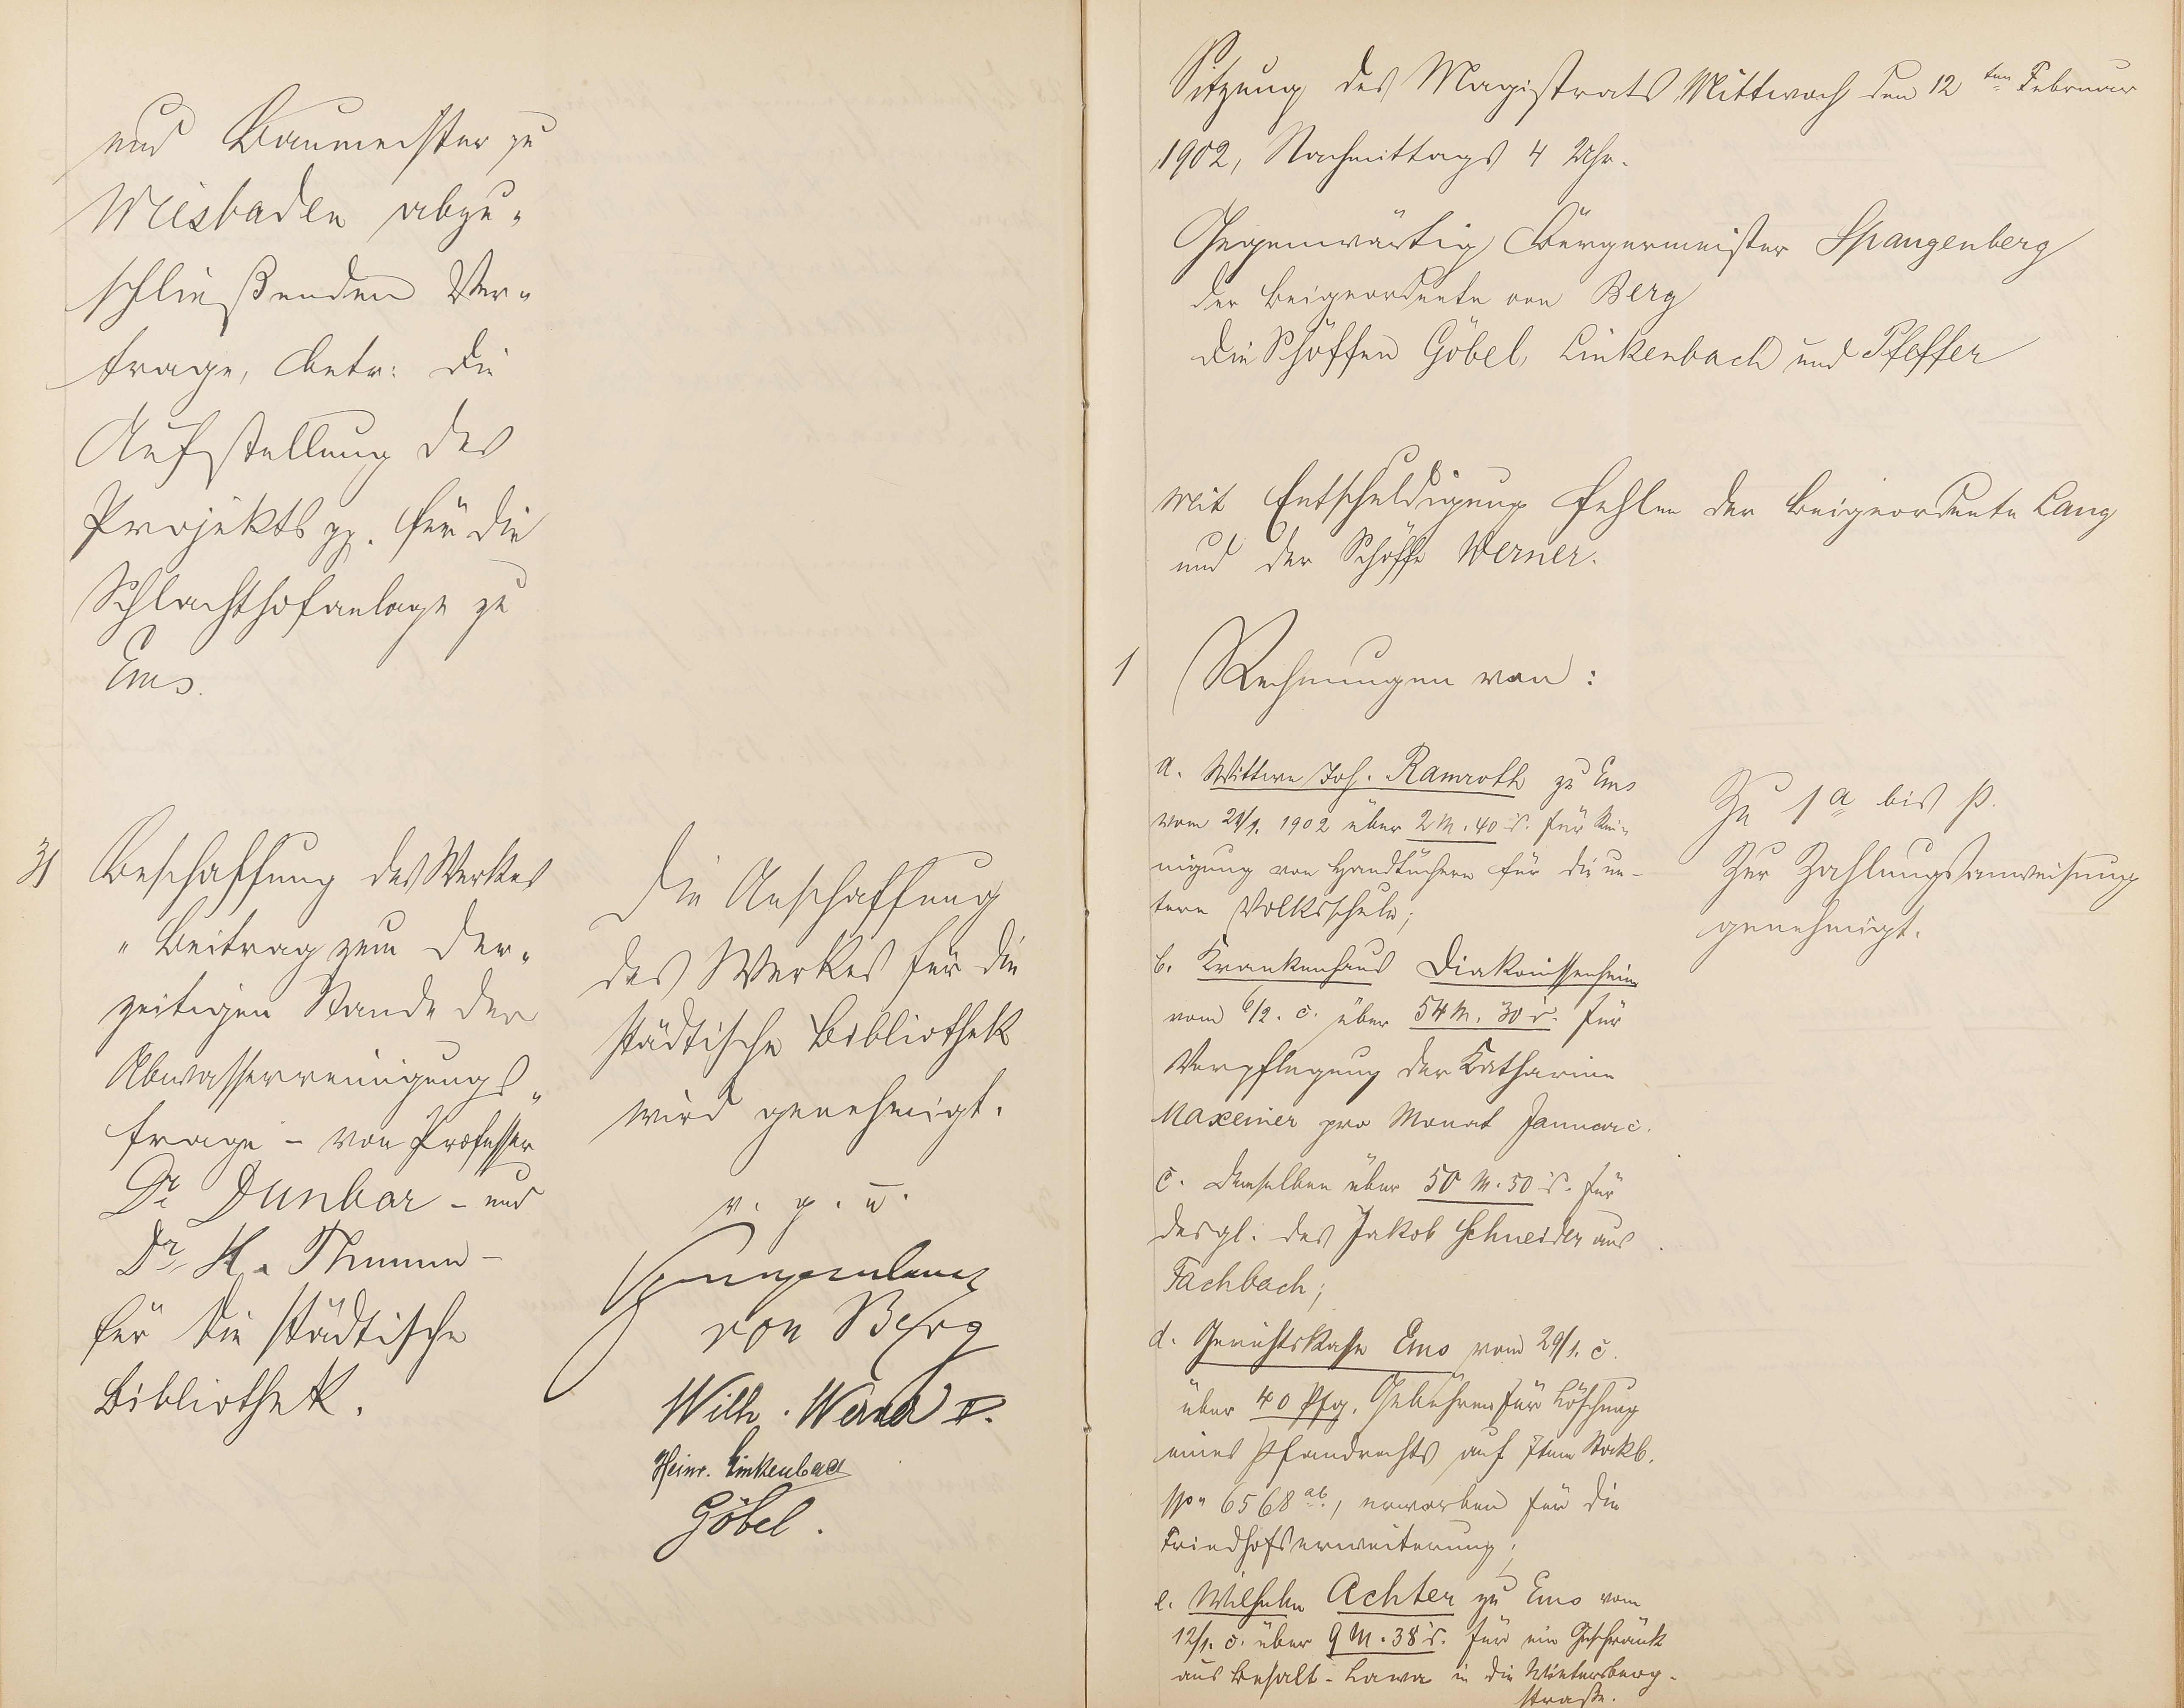 und Baumeister zu
Wiesbaden abzu-
schließenden Ver-
trage, betr: die
Aufstellung des
Projekts pp. für die
Schlachthofanlage zu
Ems.
3) Beschaffung des Werkes
"Beitrag zum der-
zeitigen Stande der
Abwasserreinigungs-
frage - von Professor
Dr Dunbar - und
Dr. K. Thumm -
für die städtische
Bibliothek.
Die Anschaffung
des Werkes für die
städtische Bibliothek
wird genehmigt.
v. g. u.
Spangenberg
von Berg
Wilh. Werner II.
Heinr. Linkenbach
Göbel.
Sitzung des Magistrats Mittwoch den 12ten Februar
1902, Nachmittags 4 Uhr.
Gegenwärtig Bürgermeister Spangenberg
der Beigeordnete von Berg
die Schöffen Göbel, Linkenbach und Pfeffer
Mit Entschuldigung fehlen der Beigeordnete Lang
und der Schöffe Werner.
1 Rechnungen von:
a. Wittwe Joh. Ramroth zu Ems
vom 1902 über 2 M. 40 S. für Rei-
nigung von Handtüchern für die un-
tere Volksschule;
b. Krankenhaus Diakonissenheim
vom 6/2. c. über 54 M. 30 S. für
Verpflegung der Katharine
Maxeiner pro Monat Januar c.
c. demselben über 50 M. 50 S. für
desgl. des Jakob Schneider aus
Fachbach;
d. Gerichtskasse Ems vom 29/1. c.
über 40 Pfg. Gebühren für Löschung
eines Pfandrechts auf Item Stockb.
No 6568 ab, erworben für die
Friedhofserweiterung;
e. Wilhelm Achter zu Ems vom
12/1. c. über 9 M. 38 S. für ein Geschränk
aus Basalt-Lawa in die Wintersberg-
straße.
Zu 1 a bis p.
Zur Zahlungsanweisung
genehmigt.